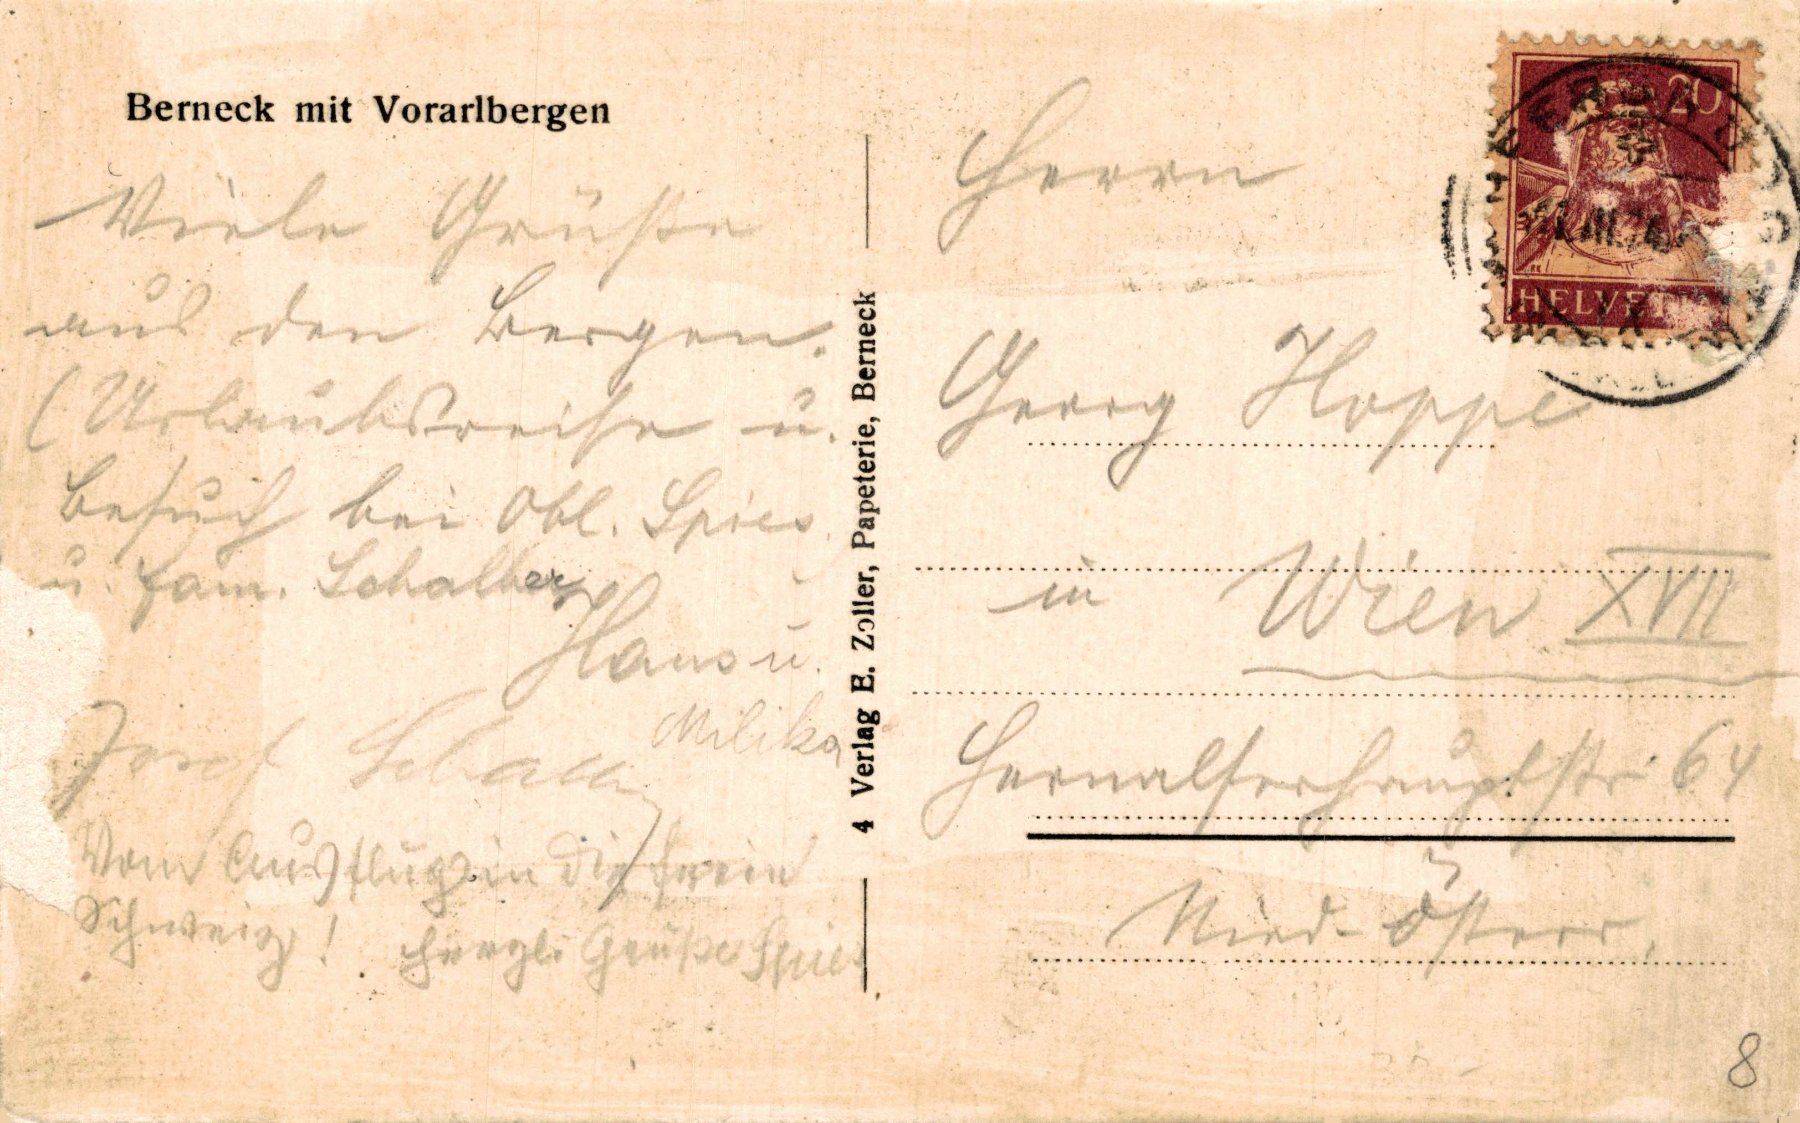 Berneck mit Vorarlbergen
Viele Grüße
aus den Bergen.
(Urlaubsreise u.
Besuch bei Obl. Spies
u. Fam. Schalber
Hans u.
Milika
Josef
Vom Ausflug in die
Schweiz! Herzl. Grüße Spies
4 Verlag E. Zoller, Papeterie, Berneck
20
HELVETIA
Herrn
Georg Hoppe
in Wien XVII
Hernalserhauptstr. 64
Nied. Österr.
8